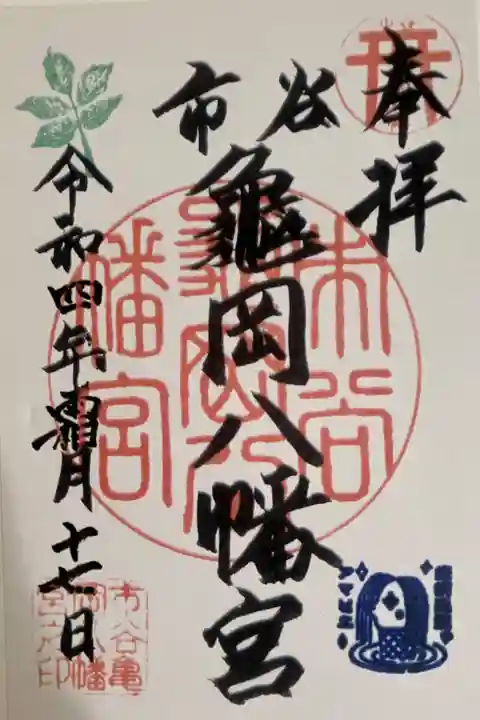 奉拝
市谷
亀岡八幡宮
令和四年霜月十七日
市谷
亀岡八
幡宮
市谷亀
岡八幡
宮之印
アマビエ